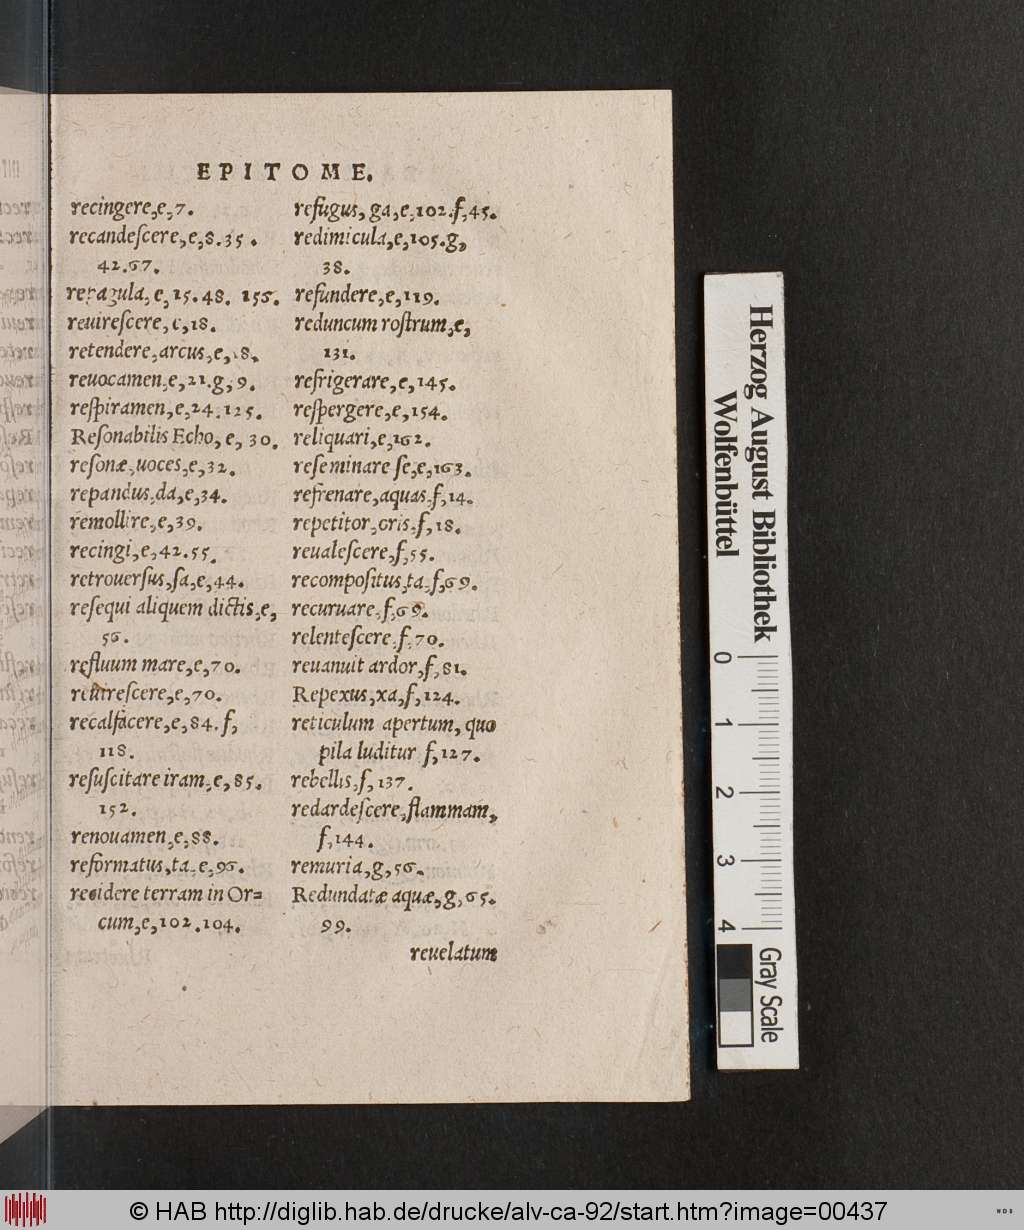 EPITOME.
recingere,e,7.
recandeſcere,e,8.35.
42.67.
repagula,e,15.48. 156.
reuireſcere,e,18.
retendere,arcus,e,18,
reuocamen,e,21.g,9.
reſpiramen,e,24.125.
Reſonabilis Echo,e,30.
reſonæ,uoces,e,32.
repandus,da,e,34.
remollire,e,39.
recingi,e,42.55.
retrouerſus,ſa,e,44.
reſequi aliquem dictis,e,
56.
refluum mare,e,70.
reuireſcere,e,70.
recalfacere,e,84.f,
118.
reſuſcitare iram,e,85.
152.
renouamen,e,88.
reformatus,ta,e,96.
residere terram in Or=
cum,e,102.104.
refugus,ga,e,102.f,45.
redimicula,e,105.g,
38.
refundere,e,119.
reduncum roſtrum,e,
131.
refrigerare,e,145.
reſpergere,e,154.
reliquari,e,162.
reſeminare ſe,e,163.
refrenare,aquas,f,14.
repetitor,oris,f,18.
reualeſcere,f,55.
recompoſitus,ta,f,69.
recuruare,f,69.
relenteſcere,f,70.
reuanuit ardor,f,81.
Repexus,xa,f,124.
reticulum apertum, quo
pila luditur f,127.
rebellis,f,137.
redardeſcere,flammam,
f,144.
remuria,g,56.
Redundatæ aquæ,g,65.
99.
reuelatum
Herzog August Bibliothek
Wolfenbüttel
0 1 2 3 4
Gray Scale
© HAB http://diglib.hab.de/drucke/alv-ca-92/start.htm?image=00437